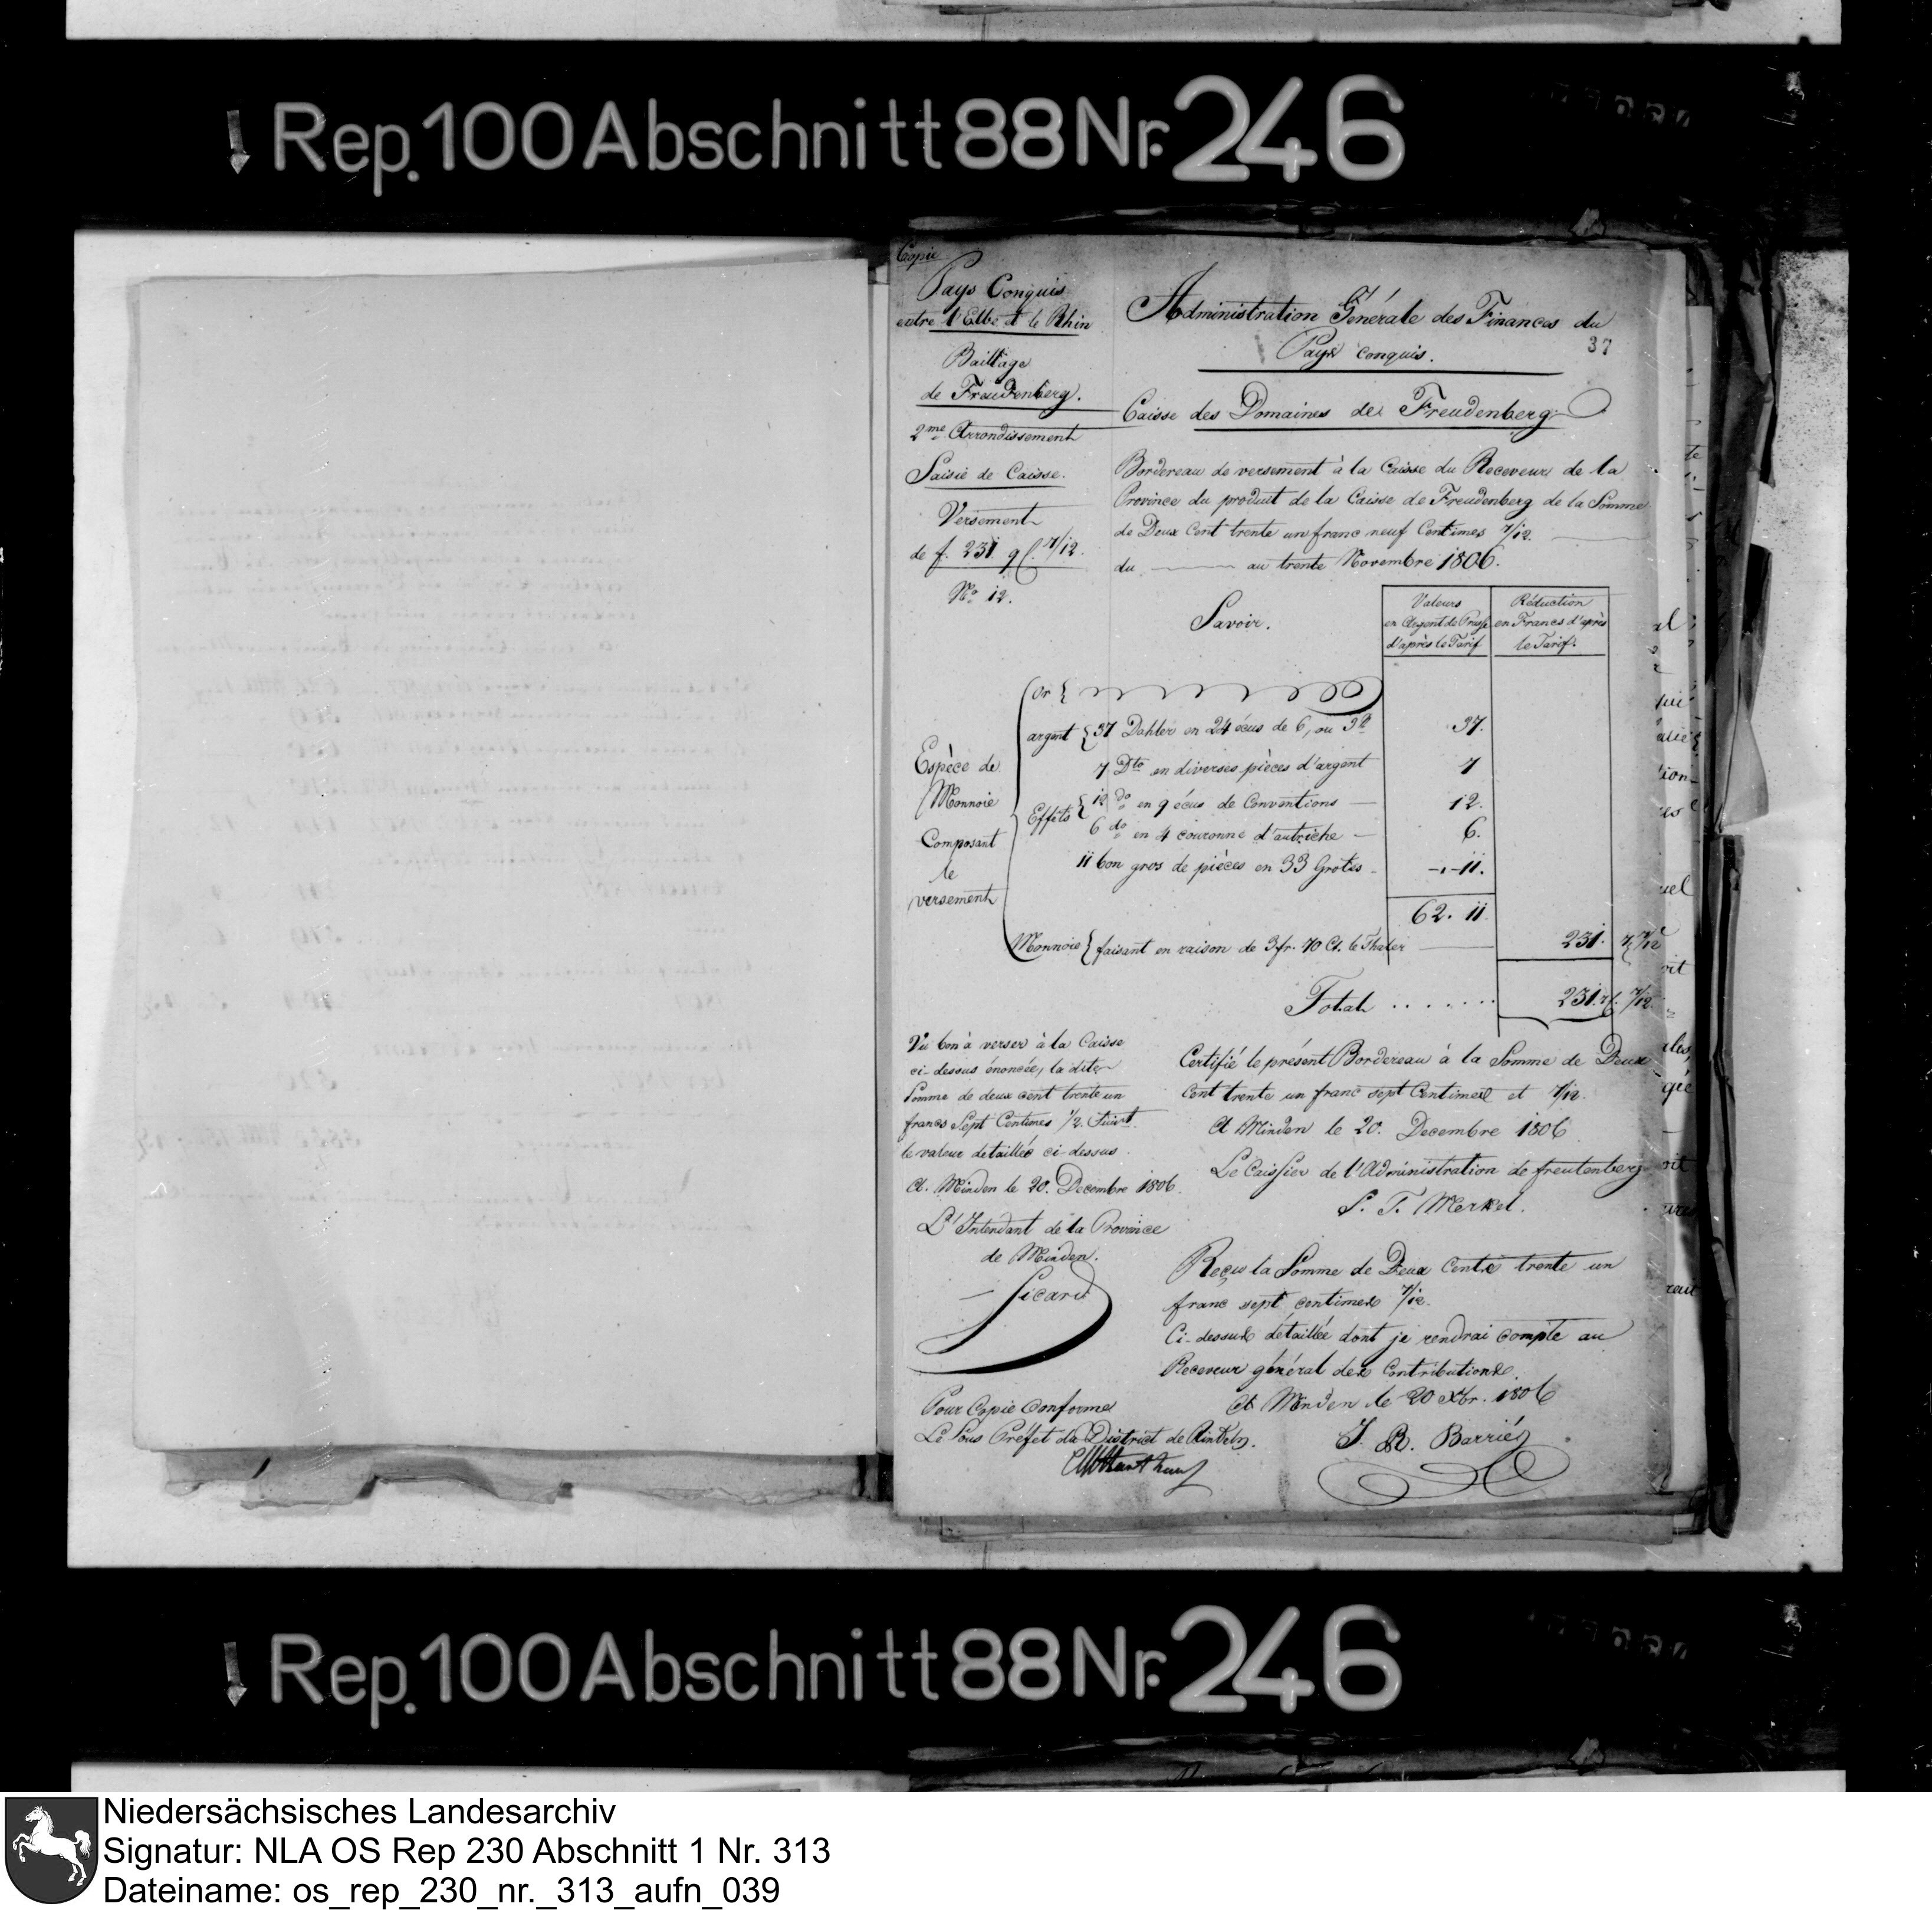 Rep. 100 Abschnitt 88 Nr. 246
Copie
Pays Conquis
entre l'Elbe et le Rhin
Bailliage
de Freudenberg.
2me Arrondissement
Saisie de Caisse.
Versement
de f. 231 9 C. 7/12.
No. 12.
Administration Générale des Finances du
Pays conquis.
37
Caisse des Domaines de Freudenberg
Bordereau de versement à la Caisse du Receveur de la
Province du produit de la Caisse de Freudenberg de la Somme
de Deux Cent trente un franc neuf Centimes 7/12.
du au trente Novembre 1806.
Savoir.
Valeurs
en Argent de Pruss
d'après le Tarif
Réduction
en Francs d'après
le Tarif.
Espèce de
Monnoie
Composant
le
versement
Or
argent 37 Dahler en 24 écus de 6, ou 37.
7 Dto en diverses pièces d'argent 7
Effets 12 do en 9 écus de Conventions — 12.
6 do en 4 couronne d'autriche — 6.
11 bon gros de pièces en 33 Grotes - 11.
62. 11.
Monnoie faisant en raison de 3 fr. 70 Ct. le Thaler 231. 7 7/12
Total ....... 231. 7 7/12.
Vu bon à verser à la Caisse
ci-dessus énoncée, la dite
Somme de deux cent trente un
francs Sept Centimes 7/12. Suivt.
le valeur detaillée ci-dessus.
A. Minden le 20. Decembre 1806.
L'Intendant de la Province
de Minden.
Sicard
Pour Copie Conforme
Le Sous Préfet du District de Rinteln.
Certifié le présent Bordereau à la Somme de Deux
Cent trente un franc sept Centimes et 7/12.
A Minden le 20. Decembre 1806
Le Caissier de l'Administration de freutenberg
S. T. Merkel.
Reçu la Somme de Deux Cents trente un
franc sept centimes 7/12.
Ci-dessus détaillée dont je rendrai compte au
Receveur général des Contributions.
A Minden le 20 Xbr. 1806
J. B. Barriés
Rep. 100 Abschnitt 88 Nr. 246
Niedersächsisches Landesarchiv
Signatur: NLA OS Rep 230 Abschnitt 1 Nr. 313
Dateiname: os_rep_230_nr._313_aufn_039